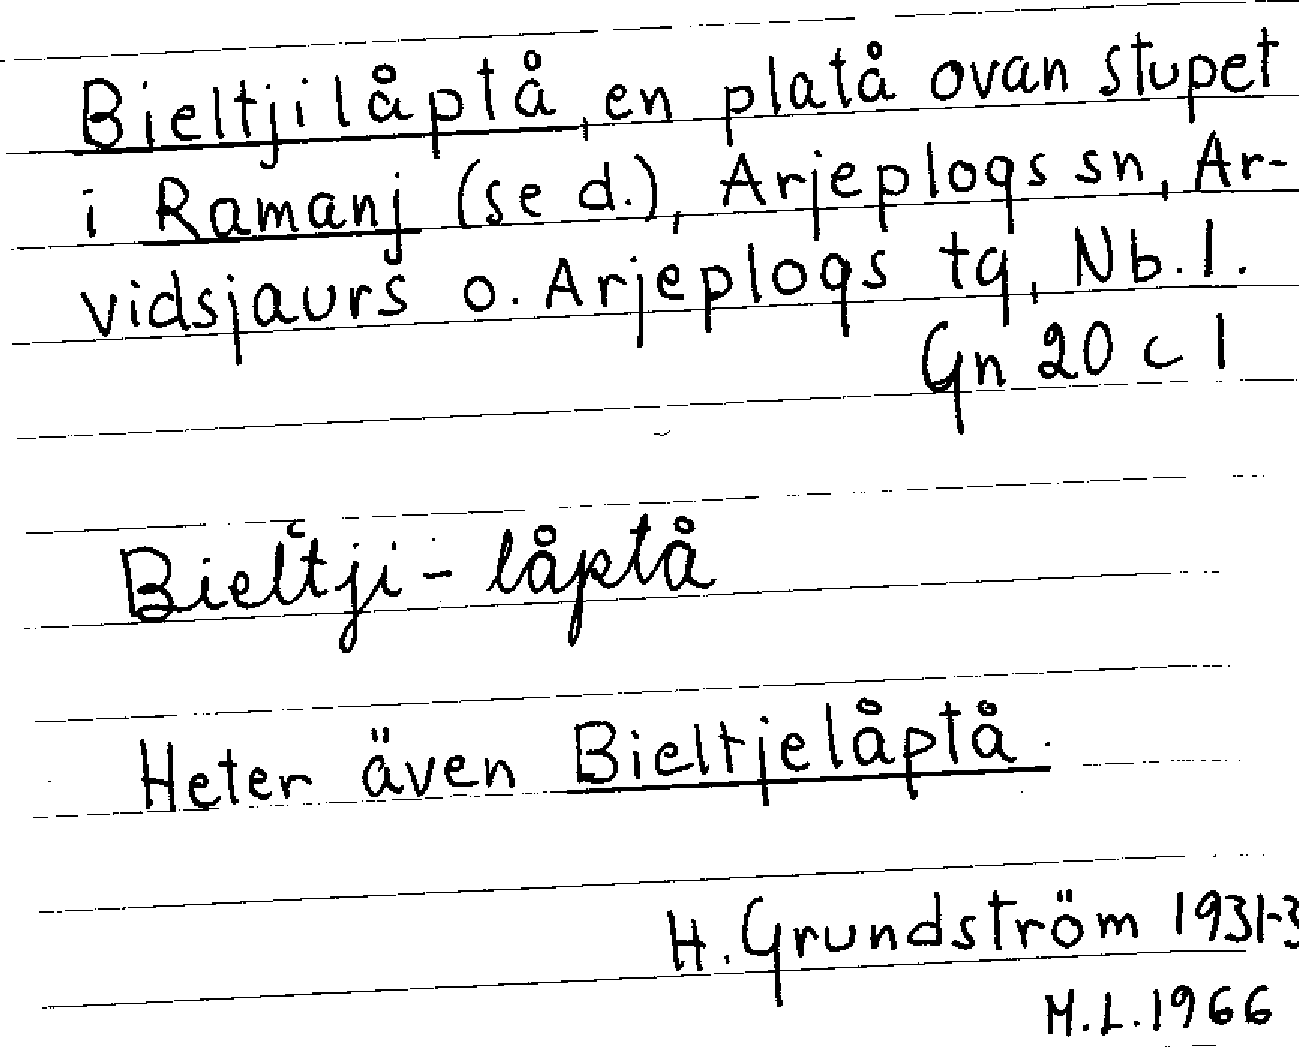 Bieltjilåptå, en platå ovan stupet
i Ramanj (se d.), Arjeplogs sn, Ar-
vidsjaurs o. Arjeplogs tg, Nb.l.
Gn 20 c 1
Bieltji-låptå
Heter även Bieltjelåptå.
H. Grundström 1931-3
M.L.1966